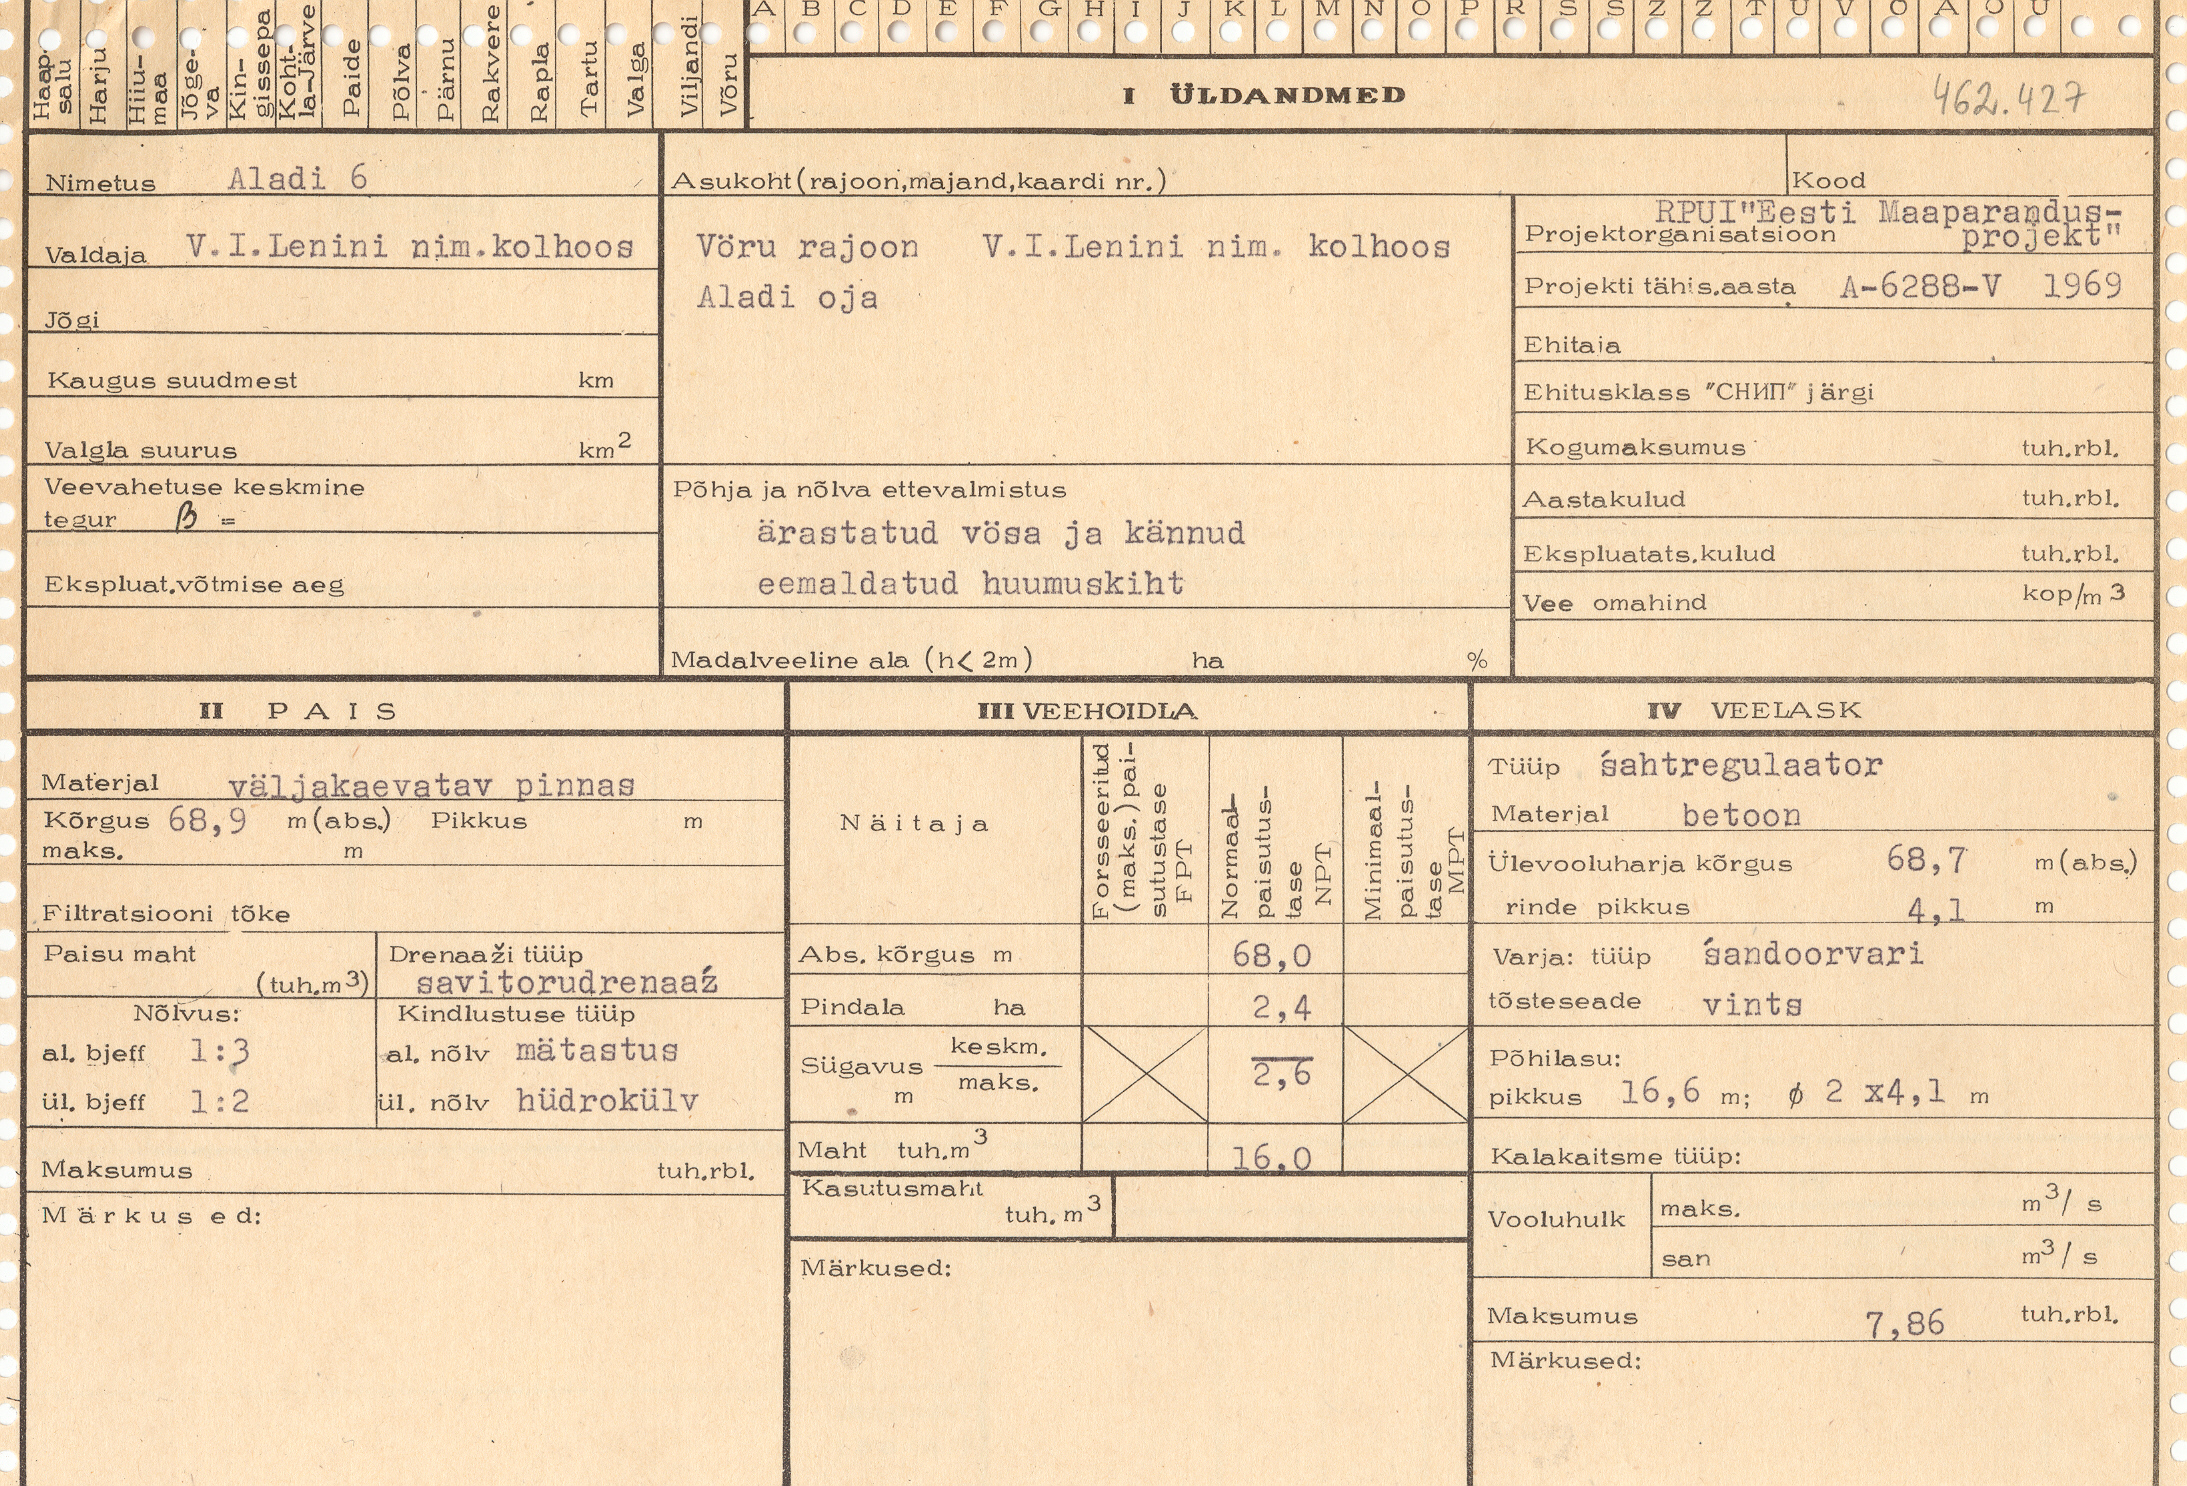 Haap-
salu
Harju
Hiiu-
maa
Jõge-
va
Kin-
gissepa
Koht-
la-Järve
Paide
Põlva
Pärnu
Rakvere
Rapla
Tartu
Valga
Viljandi
Võru
A B C D E F G H I J K L M N O P R S Š Z Ž T U V Õ Ä Ö Ü
I ÜLDANDMED
462.427
Nimetus Aladi 6
Valdaja V.I.Lenini nim.kolhoos
Jõgi
Kaugus suudmest km
Valgla suurus km²
Veevahetuse keskmine
tegur β =
Ekspluat.võtmise aeg
Asukoht (rajoon,majand,kaardi nr.)
Vöru rajoon V.I.Lenini nim. kolhoos
Aladi oja
Põhja ja nõlva ettevalmistus
ärastatud vösa ja kännud
eemaldatud huumuskiht
Madalveeline ala (h< 2m) ha %
Kood
RPUI"Eesti Maaparandus-
Projektorganisatsioon projekt"
Projekti tähis.aasta A-6288-V 1969
Ehitaja
Ehitusklass "СНИП" järgi
Kogumaksumus tuh.rbl.
Aastakulud tuh.rbl.
Ekspluatats.kulud tuh.rbl.
Vee omahind kop/m³
II PAIS
Materjal väljakaevatav pinnas
Kõrgus 68,9 m(abs.) Pikkus m
maks. m
Filtratsiooni tõke
Paisu maht
(tuh.m³)
Drenaaži tüüp
savitorudrenaaź
Nõlvus:
al. bjeff 1:3
ül. bjeff 1:2
Kindlustuse tüüp
al. nõlv mätastus
ül. nõlv hüdrokülv
Maksumus tuh.rbl.
Märkused:
III VEEHOIDLA
Näitaja
Forsseeritud
(maks.) pai-
sutustase
FPT
Normaal-
paisutus-
tase
NPT
Minimaal-
paisutus-
tase
MPT
Abs. kõrgus m 68,0
Pindala ha 2,4
Sügavus keskm.
maks.
m
2,6
Maht tuh.m³ 16,0
Kasutusmaht
tuh.m³
Märkused:
IV VEELASK
Tüüp śahtregulaator
Materjal betoon
Ülevooluharja kõrgus 68,7 m(abs.)
rinde pikkus 4,1 m
Varja: tüüp śandoorvari
tõsteseade vints
Põhilasu:
pikkus 16,6 m; ø 2 x4,1 m
Kalakaitsme tüüp:
Vooluhulk
maks. m³/ s
san m³/ s
Maksumus 7,86 tuh.rbl.
Märkused: